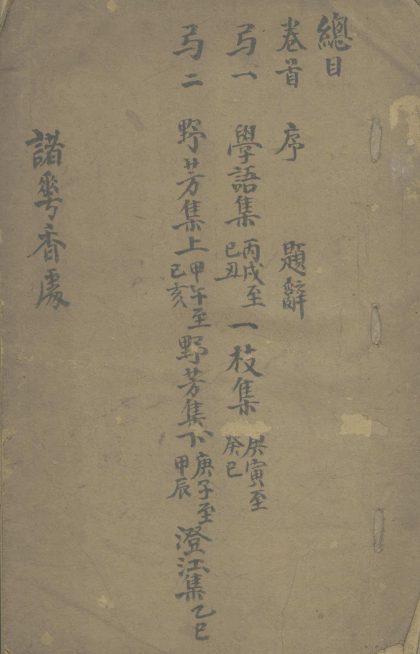 總目
卷首 序 題辭
弓一 學語集 丙戌至己丑 一枝集 庚寅至癸巳
弓二 野芳集上 甲午至己亥 野芳集下 庚子至甲辰 澄江集 乙巳
諸華香處